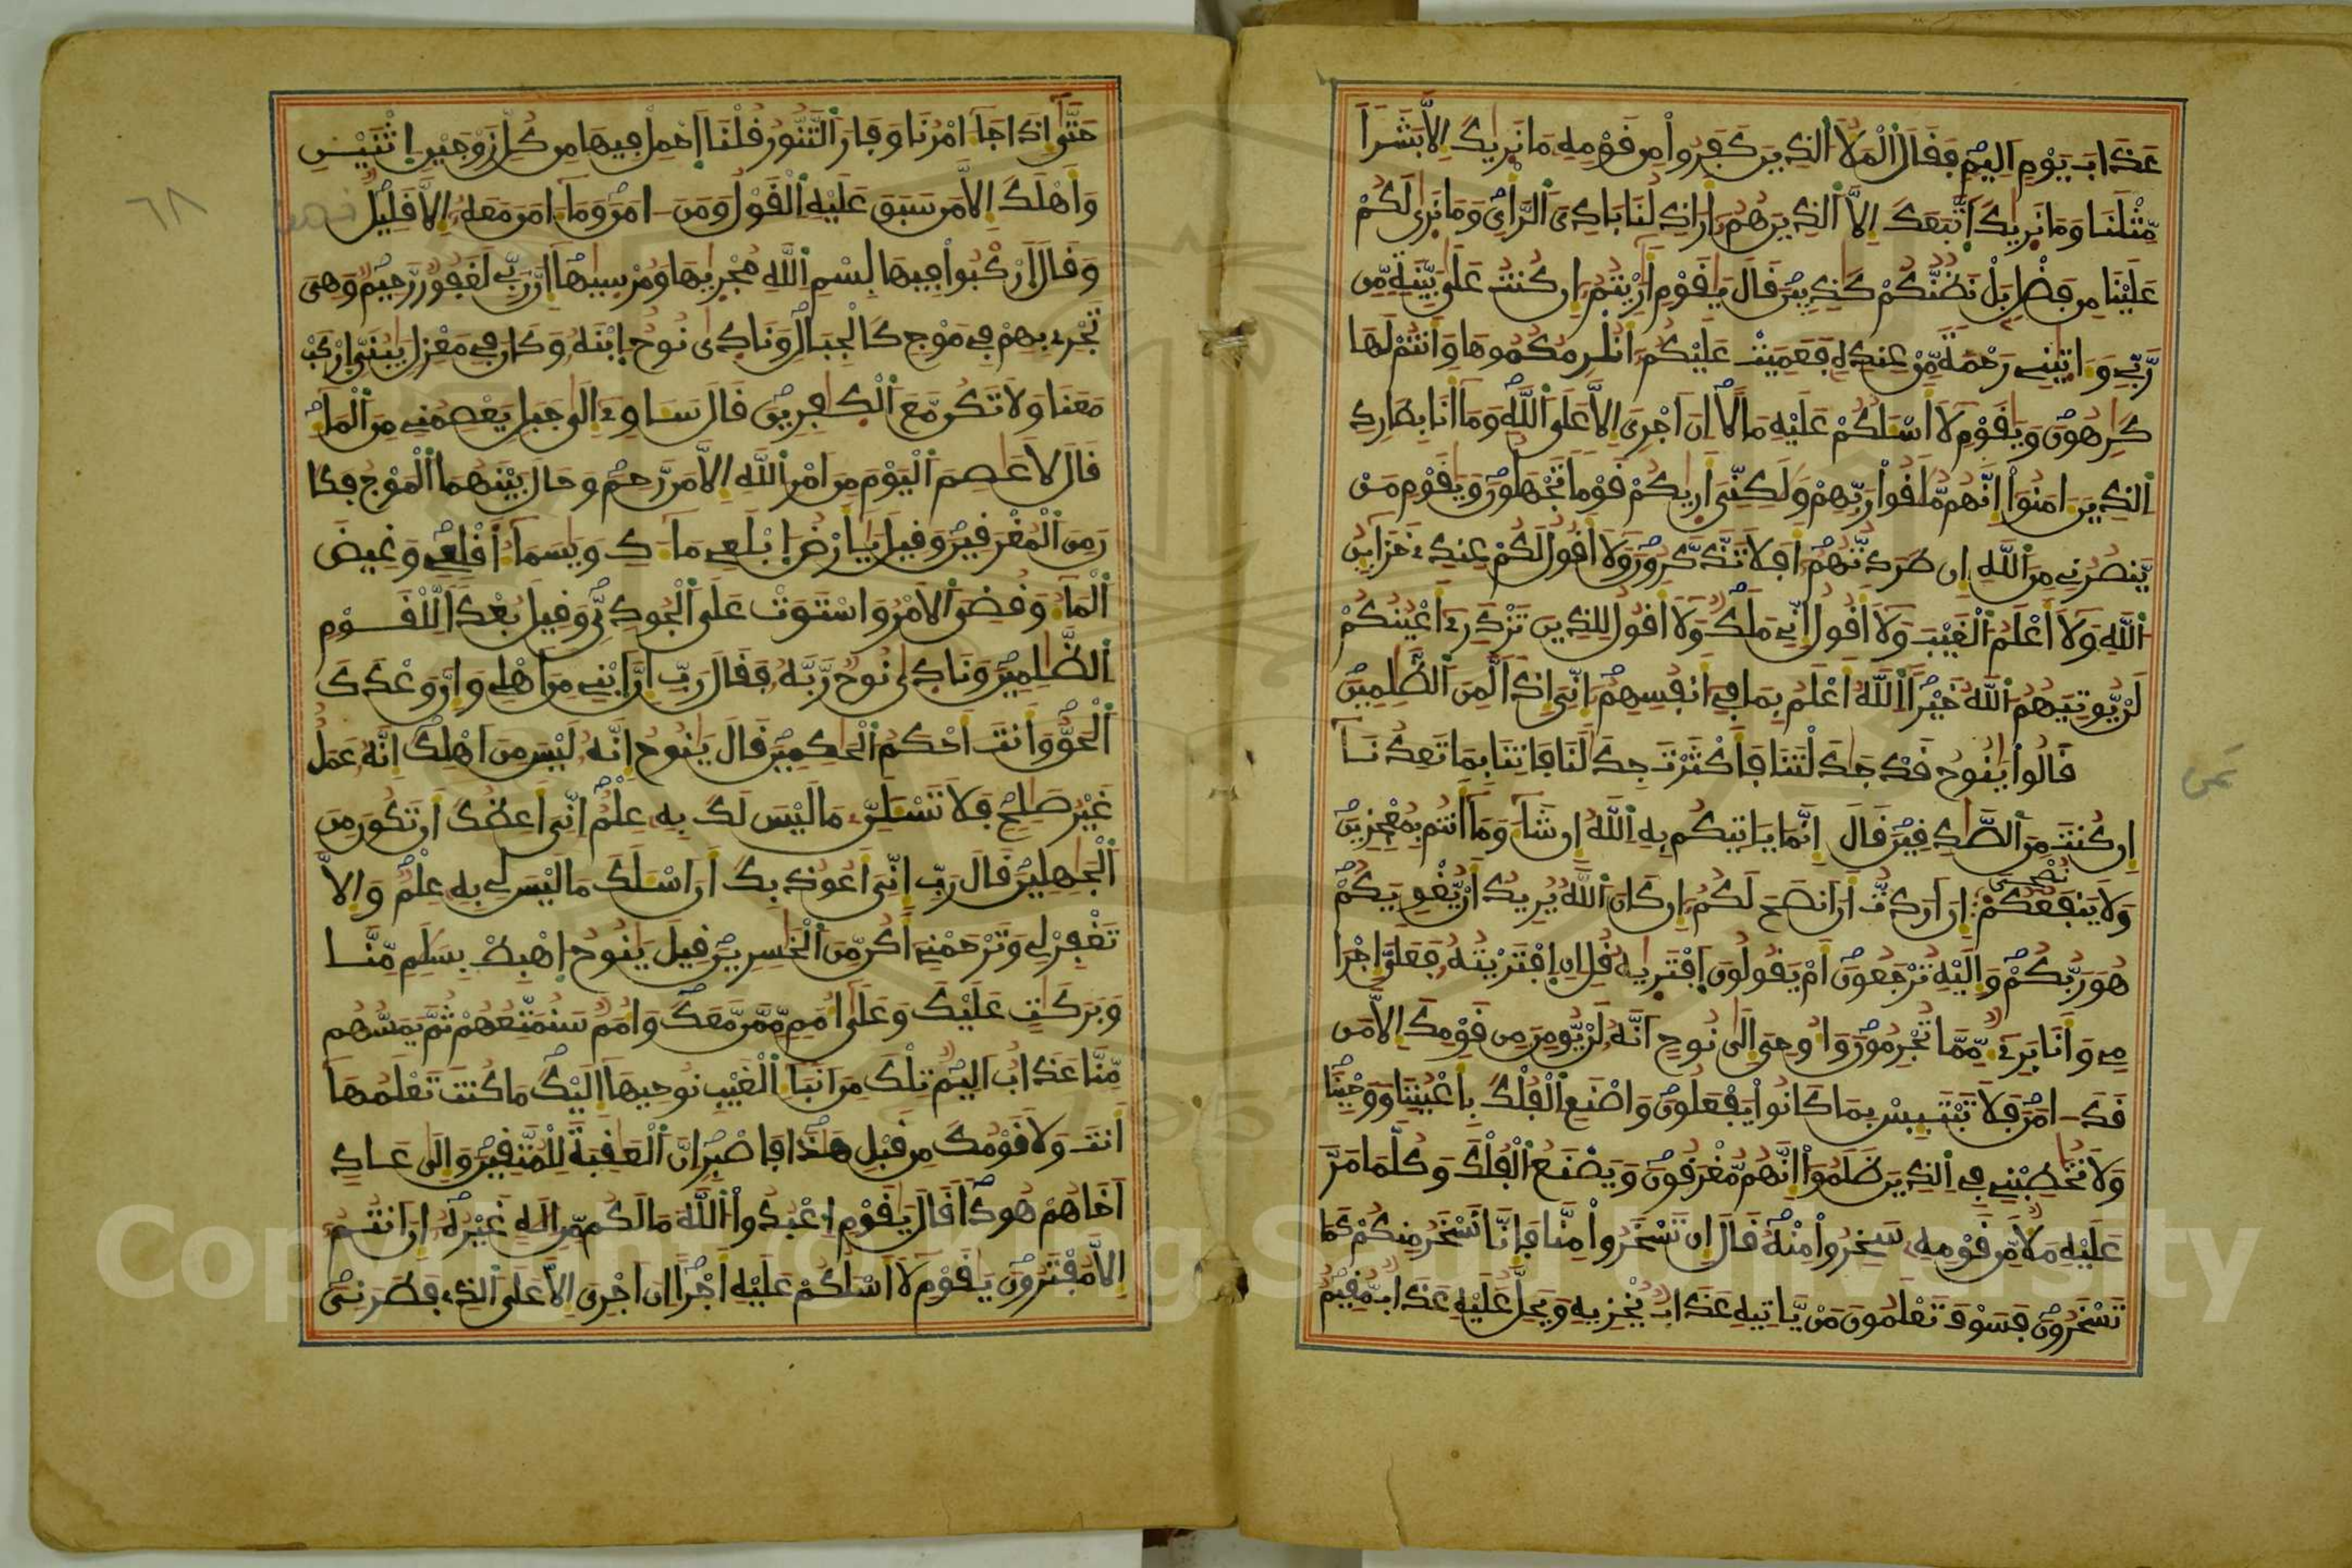 عَذَابَ يَوْمٍ اَلِيمٍ فَقَالَ اَ۬لْمَلَأُ اُ۬لذِينَ كَفَرُواْ مِن قَوْمِهِۦ مَا نَرٜيٰكَ إِلاَّ بَشَراٗ
مِّثْلَنَا وَمَا نَرٜيٰكَ اَ۪تَّبَعَكَ إِلاَّ اَ۬لذِينَ هُمُۥٓ أَرَاذِلُنَا بَادِيَ اَ۬لرَّأْيِ وَمَا نَرٜيٰ لَكُمْ
عَلَيْنَا مِن فَضْلِۢ بَلْ نَظُنُّكُمْ كَٰذِبِينَ قَالَ يَٰقَوْمِ أَرَٰٓيْتُمُۥٓ إِن كُنتُ عَلَيٰ بَيِّنَةٖ مِّن
رَّبِّے وَءَاتٜيٰنِے رَحْمَةٗ مِّنْ عِندِهِۦ فَعَمِيَتْ عَلَيْكُمُۥٓ أَنُلْزِمُكُمُوهَا وَأَنتُمْ لَهَا
كَٰرِهُونَ وَيَٰقَوْمِ لَآ أَسْـَٔلُكُمْ عَلَيْهِ مَالاً اِنَ اَجْرِيَ إِلاَّ عَلَي اَ۬للَّهِ وَمَآ أَنَا بِطَارِدِ
اِ۬لذِينَ ءَامَنُوٓاْ إِنَّهُم مُّلَٰقُواْ رَبِّهِمْ وَلَٰكِنِّيَ أَرٜيٰكُمْ قَوْماٗ تَجْهَلُونَ وَيَٰقَوْمِ مَنْ
يَّنصُرُنِے مِنَ اَ۬للَّهِ إِن طَرَدتُّهُمُۥٓ أَفَلَا تَذَّكَّرُونَ وَلَآ أَقُولُ لَكُمْ عِندِے خَزَآئِنُ
اُ۬للَّهِ وَلَآ أَعْلَمُ اُ۬لْغَيْبَ وَلَآ أَقُولُ إِنِّے مَلَكٞ وَلَآ أَقُولُ لِلذِينَ تَزْدَرِےٓ أَعْيُنُكُمْ
لَنْ يُّوتِيَهُمُ اُ۬للَّهُ خَيْراً اِ۬للَّهُ أَعْلَمُ بِمَا فِےٓ أَنفُسِهِمُۥٓ إِنِّيَ إِذاٗ لَّمِنَ اَ۬لظَّٰلِمِينَ
قَالُواْ يَٰنُوحُ قَدْ جَٰدَلْتَنَا فَأَكْثَرْتَ جِدَٰلَنَا فَاتِنَا بِمَا تَعِدُنَآ
ثمن
إِن كُنتَ مِنَ اَ۬لصَّٰدِقِينَ قَالَ إِنَّمَا يَاتِيكُم بِهِ اِ۬للَّهُ إِن شَآءَ وَمَآ أَنتُم بِمُعْجِزِينَ
وَلَا يَنفَعُكُمْ نُصْحِيَ إِنَ اَرَدتُّ أَنَ اَنصَحَ لَكُمُۥٓ إِن كَانَ اَ۬للَّهُ يُرِيدُ أَنْ يُّغْوِيَكُمْ
هُوَ رَبُّكُمْ وَإِلَيْهِ تُرْجَعُونَ أَمْ يَقُولُونَ اَ۪فْتَرٜيٰهُ قُلِ اِنِ اِ۪فْتَرَيْتُهُۥ فَعَلَيَّ إِجْرَا
مِے وَأَنَا بَرِےٓءٞ مِّمَّا تُجْرِمُونَ وَأُوحِيَ إِلَيٰ نُوحٍ اَنَّهُۥ لَنْ يُّومِنَ مِن قَوْمِكَ إِلاَّ مَن
قَدَ اٰمَنَ فَلَا تَبْتَئِسْ بِمَا كَانُواْ يَفْعَلُونَ وَاصْنَعِ اِ۬لْفُلْكَ بِأَعْيُنِنَا وَوَحْيِنَا
وَلَا تُخَٰطِبْنِے فِے اِ۬لذِينَ ظَلَمُوٓاْ إِنَّهُم مُّغْرَقُونَ وَيَصْنَعُ اُ۬لْفُلْكَ وَكُلَّمَا مَرَّ
عَلَيْهِ مَلَأٞ مِّن قَوْمِهِۦ سَخِرُواْ مِنْهُ قَالَ إِن تَسْخَرُواْ مِنَّا فَإِنَّا نَسْخَرُ مِنكُمْ كَمَا
تَسْخَرُونَ فَسَوْفَ تَعْلَمُونَ مَنْ يَّاتِيهِ عَذَابٞ يُخْزِيهِ وَيَحِلُّ عَلَيْهِ عَذَابٞ مُّقِيمٌ
٦٨
حَتَّيٰٓ إِذَا جَآءَ امْرُنَا وَفَارَ اَ۬لتَّنُّورُ قُلْنَا اَ۪حْمِلْ فِيهَا مِن كُلِّ زَوْجَيْنِ اِ۪ثْنَيْنِ
وَأَهْلَكَ إِلاَّ مَن سَبَقَ عَلَيْهِ اِ۬لْقَوْلُ وَمَنَ اٰمَنَ وَمَآ ءَامَنَ مَعَهُۥٓ إِلاَّ قَلِيلٞ
وَقَالَ اَ۪رْكَبُواْ فِيهَا بِسْمِ اِ۬للَّهِ مُجْرٜيٰهَا وَمُرْسٜيٰهَآ إِنَّ رَبِّے لَغَفُورٞ رَّحِيمٞ وَهِيَ
تَجْرِے بِهِمْ فِے مَوْجٖ كَالْجِبَالِ وَنَادٜيٰ نُوحٌ اِ۪بْنَهُۥ وَكَانَ فِے مَعْزِلٖ يَٰبُنَيِّ اِ۪رْكَب
مَّعَنَا وَلَا تَكُن مَّعَ اَ۬لْكٰفِرِينَ قَالَ سَـَٔاوِےٓ إِلَيٰ جَبَلٖ يَعْصِمُنِے مِنَ اَ۬لْمَآءِ
قَالَ لَا عَاصِمَ اَ۬لْيَوْمَ مِنَ اَمْرِ اِ۬للَّهِ إِلاَّ مَن رَّحِمَ وَحَالَ بَيْنَهُمَا اَ۬لْمَوْجُ فَكَا
نَ مِنَ اَ۬لْمُغْرَقِينَ وَقِيلَ يَٰٓأَرْضُ اُ۪بْلَعِے مَآءَكِ وَيَٰسَمَآءُ أَقْلِعِے وَغِيضَ
اَ۬لْمَآءُ وَقُضِيَ اَ۬لَامْرُ وَاسْتَوَتْ عَلَي اَ۬لْجُودِيِّ وَقِيلَ بُعْداٗ لِّلْقَوْمِ
اِ۬لظَّٰلِمِينَ وَنَادٜيٰ نُوحٞ رَّبَّهُۥ فَقَالَ رَبِّ إِنَّ اَ۪بْنِے مِنَ اَهْلِے وَإِنَّ وَعْدَكَ
اَ۬لْحَقُّ وَأَنتَ أَحْكَمُ اُ۬لْحَٰكِمِينَ قَالَ يَٰنُوحُ إِنَّهُۥ لَيْسَ مِنَ اَهْلِكَ إِنَّهُۥ عَمَلٌ
غَيْرُ صَٰلِحٖ فَلَا تَسْـَٔلَنِّۦ مَا لَيْسَ لَكَ بِهِۦ عِلْمٌ اِنِّيَ أَعِظُكَ أَن تَكُونَ مِنَ
اَ۬لْجَٰهِلِينَ قَالَ رَبِّ إِنِّيَ أَعُوذُ بِكَ أَنَ اَسْـَٔلَكَ مَا لَيْسَ لِے بِهِۦ عِلْمٞ وَإِلاَّ
تَغْفِرْ لِے وَتَرْحَمْنِےٓ أَكُن مِّنَ اَ۬لْخَٰسِرِينَ قِيلَ يَٰنُوحُ اُ۪هْبِطْ بِسَلَٰمٖ مِّنَّا
وَبَرَكَٰتٍ عَلَيْكَ وَعَلَيٰٓ أُمَمٖ مِّمَّن مَّعَكَ وَأُمَمٞ سَنُمَتِّعُهُمْ ثُمَّ يَمَسُّهُم
مِّنَّا عَذَابٌ اَلِيمٞ تِلْكَ مِنَ اَنۢبَآءِ اِ۬لْغَيْبِ نُوحِيهَآ إِلَيْكَ مَا كُنتَ تَعْلَمُهَآ
أَنتَ وَلَا قَوْمُكَ مِن قَبْلِ هَٰذَا فَاصْبِرِ اِنَّ اَ۬لْعَٰقِبَةَ لِلْمُتَّقِينَ وَإِلَيٰ عَادٍ
اَخَاهُمْ هُوداٗ قَالَ يَٰقَوْمِ اِ۟عْبُدُواْ اُ۬للَّهَ مَا لَكُم مِّنِ اِلَٰهٍ غَيْرُهُۥٓ إِنَ اَنتُمُۥٓ
إِلاَّ مُفْتَرُونَ يَٰقَوْمِ لَآ أَسْـَٔلُكُمْ عَلَيْهِ أَجْراً اِنَ اَجْرِيَ إِلاَّ عَلَي اَ۬لذِے فَطَرَنِيَ
Copyright © King Saud University